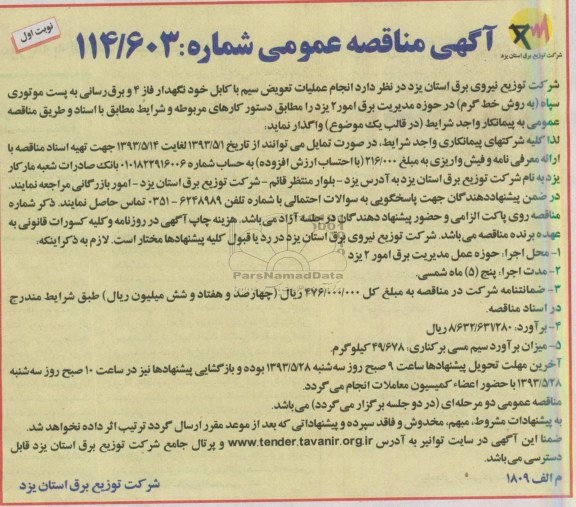 نوبت اول
آگهی مناقصه عمومی شماره: ۱۱۴/۶۰۳
شرکت توزیع برق استان یزد
شرکت توزیع نیروی برق استان یزد در نظر دارد انجام عملیات تعویض سیم با کابل خود نگهدار فاز ۴ و برق‌رسانی به پست موتوری
سپاه (به روش خط گرم) در حوزه مدیریت برق امور۲ یزد را مطابق دستور کارهای مربوطه و شرایط مطابق با اسناد و طریق مناقصه
عمومی به پیمانکار واجد شرایط (در قالب یک موضوع) واگذار نماید:
لذا کلیه شرکتهای پیمانکاری واجد شرایط، در صورت تمایل می توانند از تاریخ ۱۳۹۳/۵/۱ لغایت ۱۳۹۳/۵/۱۴ جهت تهیه اسناد مناقصه با
ارائه معرفی نامه و فیش واریزی به مبلغ ۲۱۶/۰۰۰ (با احتساب ارزش افزوده) به حساب شماره ۰۱۰۱۸۲۲۹۱۶۰۰۶ بانک صادرات شعبه مارکار
یزد به نام شرکت توزیع برق استان یزد به آدرس یزد - بلوار منتظر قائم - شرکت توزیع برق استان یزد - امور بازرگانی مراجعه نمایند.
در ضمن پیشنهاددهندگان جهت پاسخگویی به سوالات احتمالی با شماره تلفن ۶۲۴۸۹۸۹ - ۰۳۵۱ تماس حاصل نمایند. ذکر شماره
مناقصه روی پاکت الزامی و حضور پیشنهاد دهندگان در جلسه آزاد می‌باشد. هزینه چاپ آگهی در روزنامه و کلیه کسورات قانونی به
عهده برنده مناقصه می‌باشد. شرکت توزیع نیروی برق استان یزد در رد یا قبول کلیه پیشنهادها مختار است. لازم به ذکر اینکه:
۱- محل اجرا: حوزه عمل مدیریت برق امور ۲ یزد
۲- مدت اجرا: پنج (۵) ماه شمسی.
۳- ضمانتنامه شرکت در مناقصه به مبلغ کل ۴۷۶/۰۰۰/۰۰۰ ریال (چهارصد و هفتاد و شش میلیون ریال) طبق شرایط مندرج
در اسناد مناقصه.
۴- برآورد: ۸/۶۳۲/۶۳۱/۲۸۰ ریال
۵- میزان برآورد سیم مسی برکناری: ۴۹/۶۷۸ کیلوگرم.
آخرین مهلت تحویل پیشنهادها ساعت ۹ صبح روز سه‌شنبه ۱۳۹۳/۵/۲۸ بوده و بازگشایی پیشنهادها نیز در ساعت ۱۰ صبح روز سه‌شنبه
۱۳۹۳/۵/۲۸ با حضور اعضاء کمیسیون معاملات انجام می گردد.
مناقصه عمومی دو مرحله‌ای (در دو جلسه برگزار می گردد) می‌باشد.
به پیشنهادات مشروط، مبهم، مخدوش و فاقد سپرده و پیشنهاداتی که بعد از موعد مقرر ارسال گردد ترتیب اثر داده نخواهد شد.
ضمنا این آگهی در سایت توانیر به آدرس www.tender.tavanir.org.ir و پرتال جامع شرکت توزیع برق استان یزد قابل
دسترسی می‌باشد.
م الف ۱۸۰۹
شرکت توزیع برق استان یزد
ParsNamadData